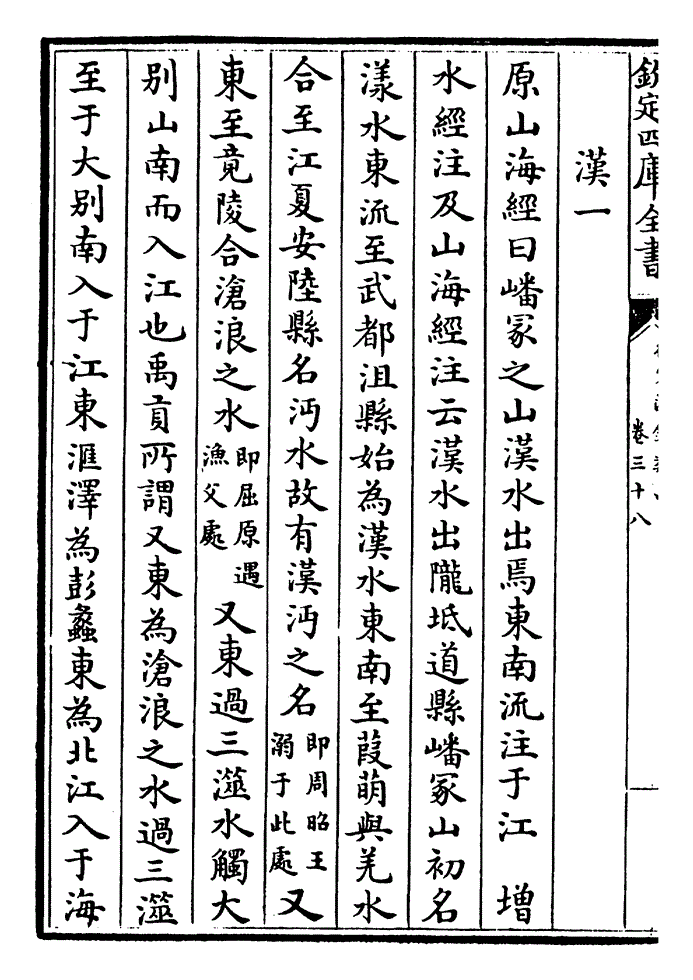 欽定四庫全書
卷三十八
漢一
原山海經曰嶓冢之山漢水出焉東南流注于江 增
水經注及山海經注云漢水出隴坻道縣嶓冢山初名
漾水東流至武都沮縣始為漢水東南至葭萌與羌水
合至江夏安陸縣名沔水故有漢沔之名即周昭王溺于此處又
東至竟陵合滄浪之水即屈原遇漁父處又東過三澨水觸大
別山南而入江也禹貢所謂又東為滄浪之水過三澨
至于大別南入于江東滙澤為彭蠡東為北江入于海